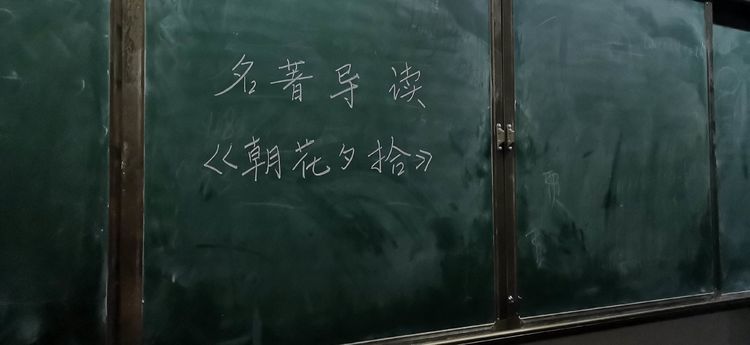 名著导读
《朝花夕拾》